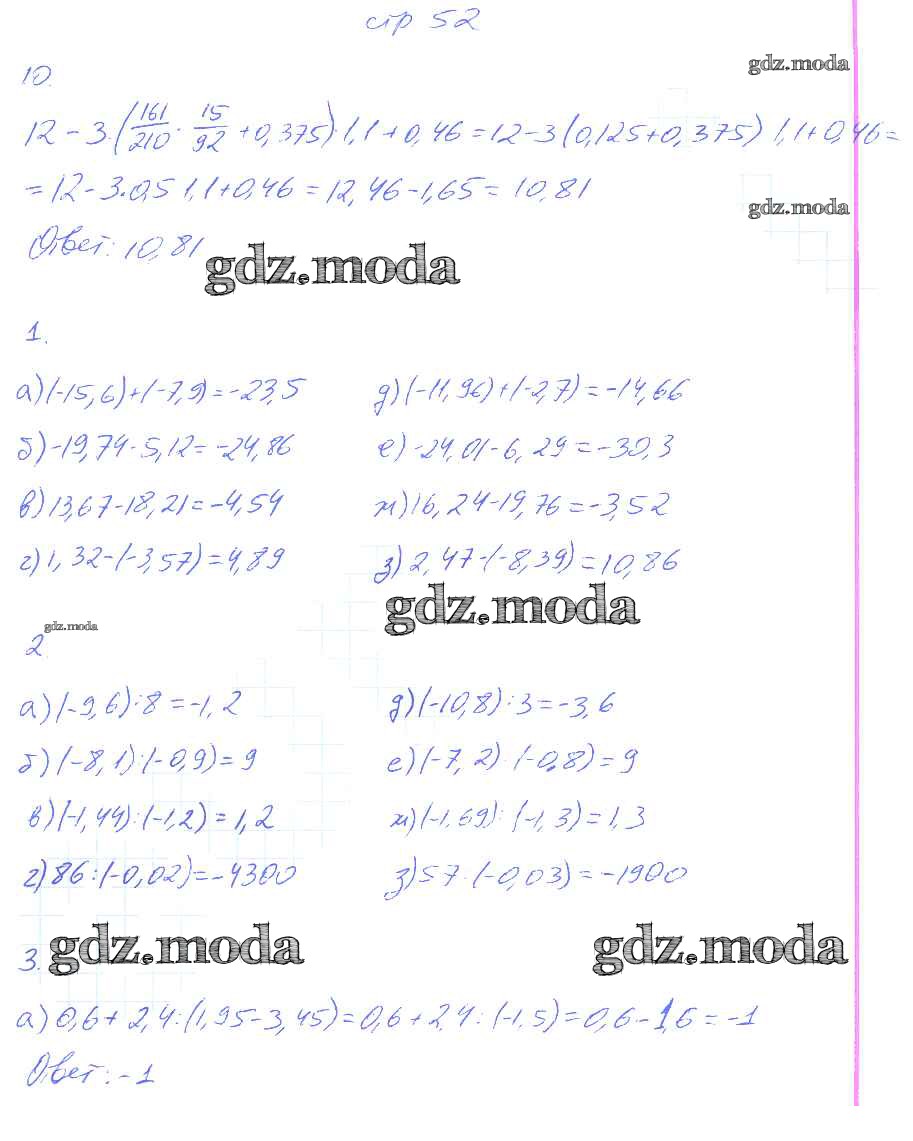 стр 52
gdz.moda
10.
12 - 3·(161/210 · 15/92 + 0,375) 1,1 + 0,46 = 12 - 3(0,125 + 0,375) 1,1 + 0,46 =
= 12 - 3·0,5 1,1 + 0,46 = 12,46 - 1,65 = 10,81
gdz.moda
Ответ: 10,81
gdz.moda
1.
а) (-15,6) + (-7,9) = -23,5 д) (-11,96) + (-2,7) = -14,66
б) -19,74 - 5,12 = -24,86 е) -24,01 - 6,29 = -30,3
в) 13,67 - 18,21 = -4,54 ж) 16,24 - 19,76 = -3,52
г) 1,32 - (-3,57) = 4,89 з) 2,47 - (-8,39) = 10,86
gdz.moda
gdz.moda
2
а) (-9,6) : 8 = -1,2 д) (-10,8) : 3 = -3,6
б) (-8,1) : (-0,9) = 9 е) (-7,2) : (-0,8) = 9
в) (-1,44) : (-1,2) = 1,2 ж) (-1,69) : (-1,3) = 1,3
г) 86 : (-0,02) = -4300 з) 57 : (-0,03) = -1900
gdz.moda gdz.moda
3.
а) 0,6 + 2,4 : (1,95 - 3,45) = 0,6 + 2,4 : (-1,5) = 0,6 - 1,6 = -1
Ответ: -1